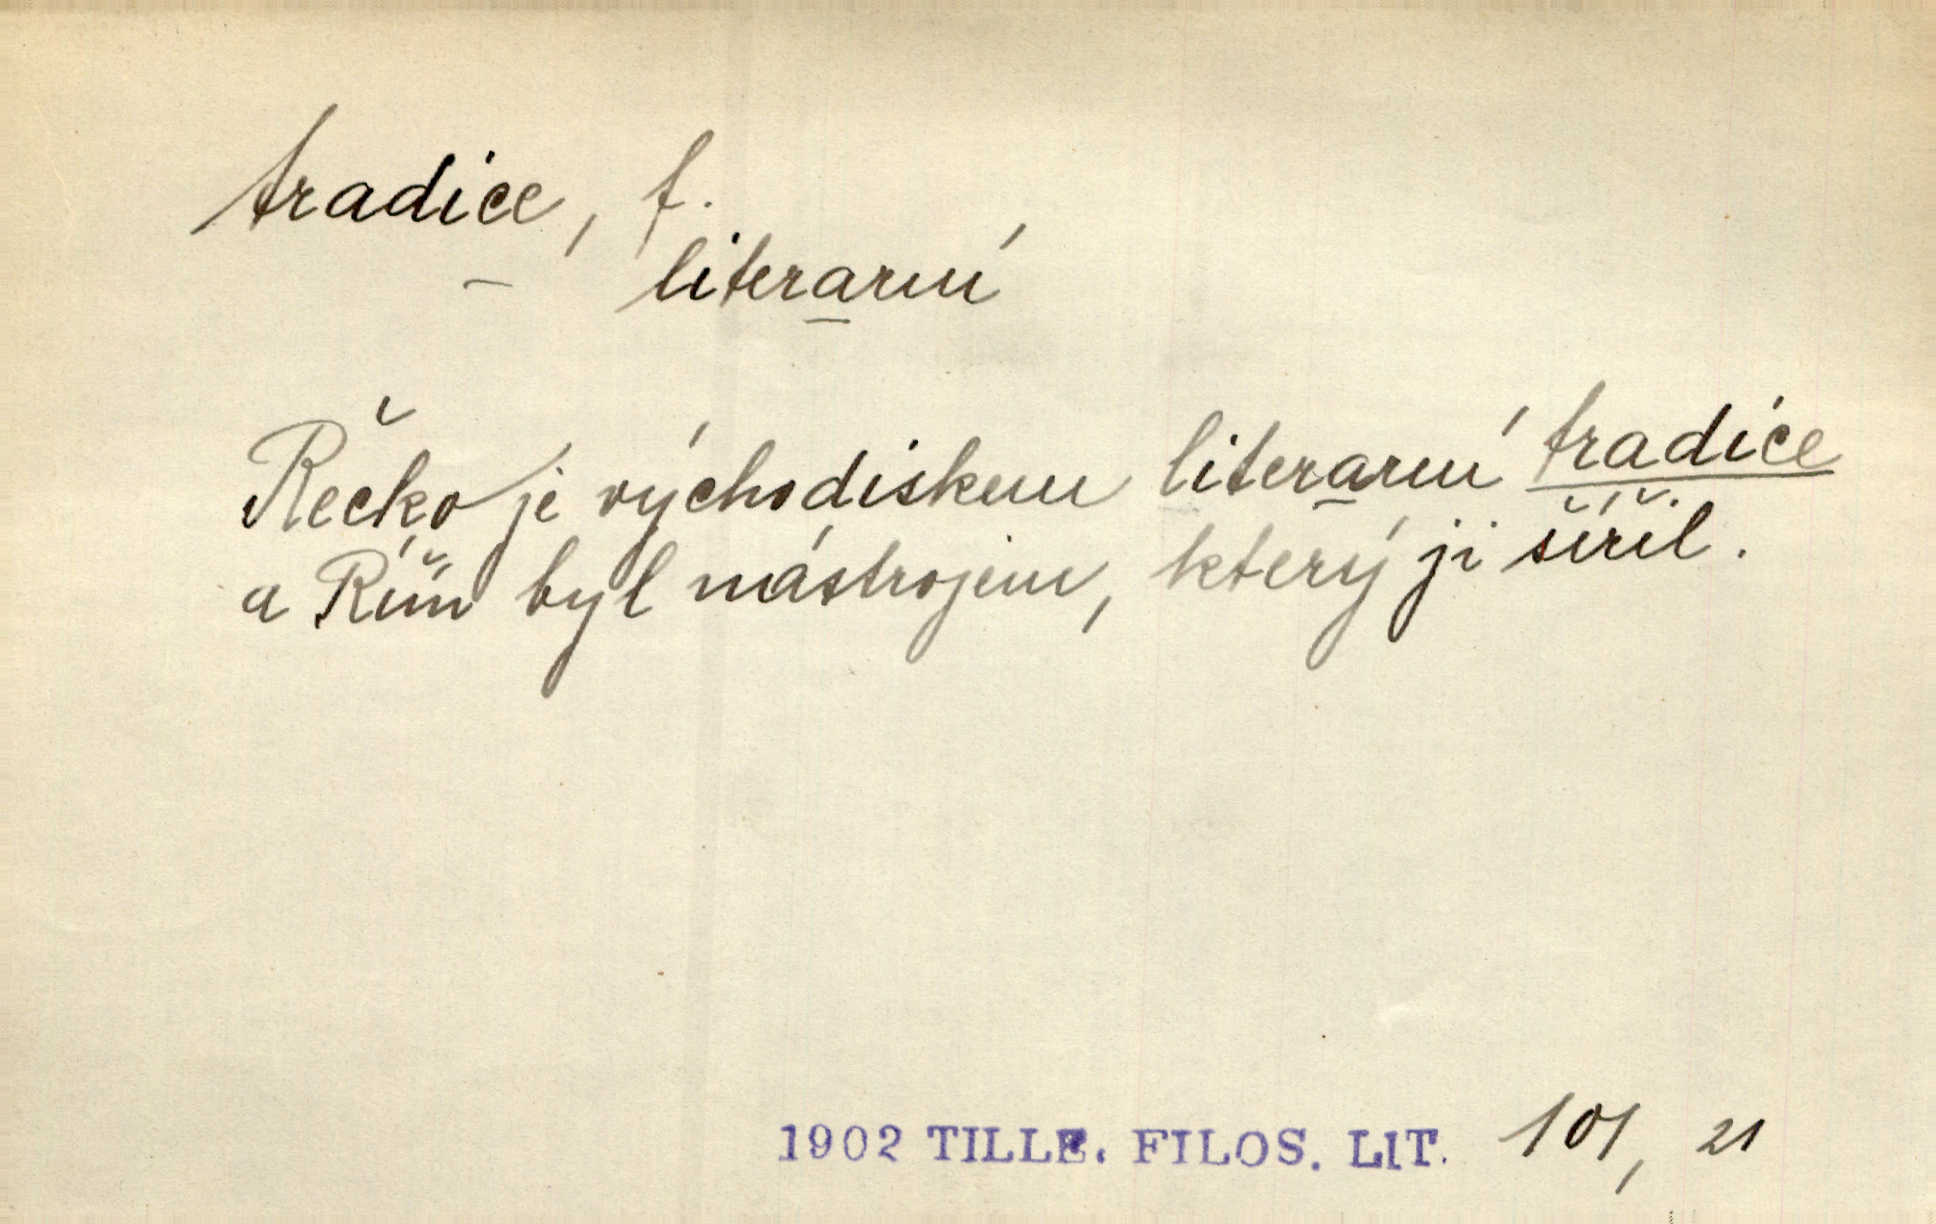 tradice, f.
– literarní
Řecko je východiskem literarní tradice
a Řím byl nástrojem, který ji šířil.
1902 TILLE. FILOS. LIT. 101, 21